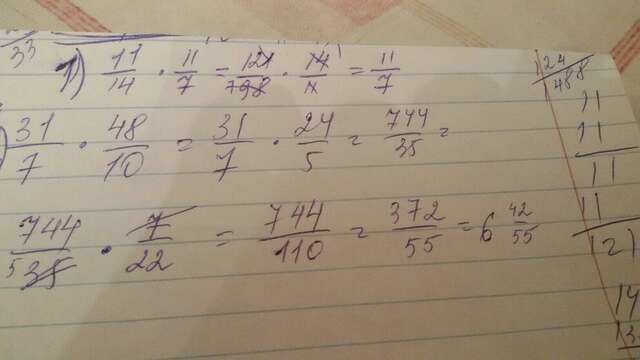 33
1) 11/14 · 11/7 = 121/798 · 14/11 = 11/7
) 31/7 · 48/10 = 31/7 · 24/5 = 744/35 =
744/35 5 · 7/22 = 744/110 = 372/55 = 6 42/55
124
488
11
11
11
11
121
14
13